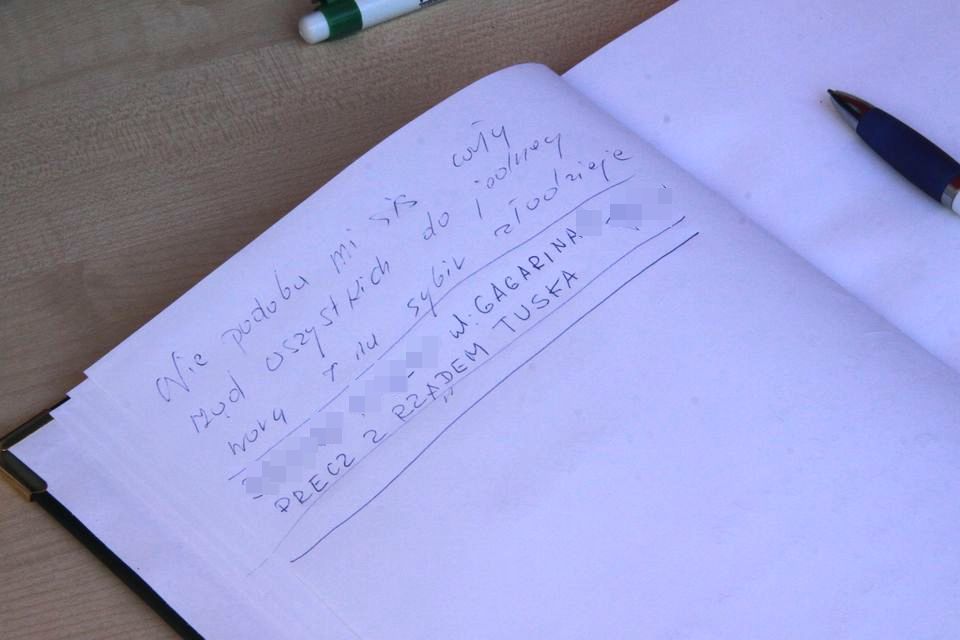 Nie podoba mi się cały
rząd wszystkich do 1 jednej
wora i na sybir złodzieje
ul. GAGARINA
PRECZ Z RZĄDEM TUSKA